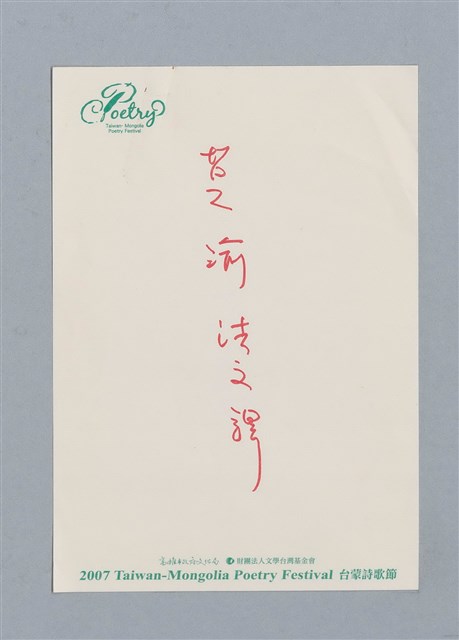 Poetry
Taiwan-Mongolia
Poetry Festival
莫渝法文譯
高雄市政府文化局 財團法人文學台灣基金會
2007 Taiwan-Mongolia Poetry Festival 台蒙詩歌節